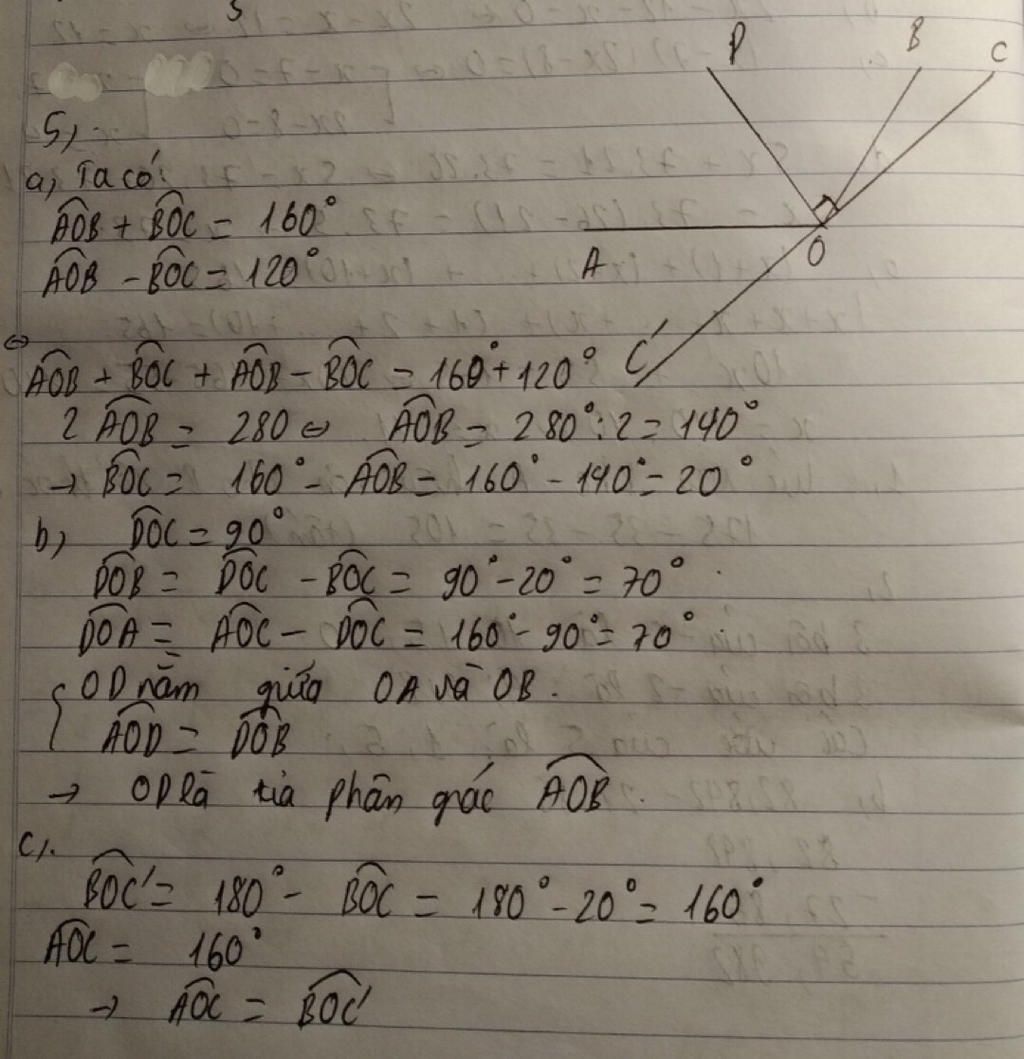 5,
D B C
a, Ta có:
A O C'
A͡OB + B͡OC = 160°
A͡OB - B͡OC = 120°
⇔
A͡OB + B͡OC + A͡OB - B͡OC = 160° + 120°
2 A͡OB = 280 ⇔ A͡OB = 280° : 2 = 140°
→ B͡OC = 160° - A͡OB = 160° - 140° = 20°
b, D͡OC = 90°
D͡OB = D͡OC - B͡OC = 90° - 20° = 70°.
D͡OA = A͡OC - D͡OC = 160° - 90° = 70°.
{ OD nằm giữa OA và OB.
A͡OD = D͡OB
→ OD là tia phân giác A͡OB.
c,.
B͡OC' = 180° - B͡OC = 180° - 20° = 160°
A͡OC = 160°
→ A͡OC = B͡OC'